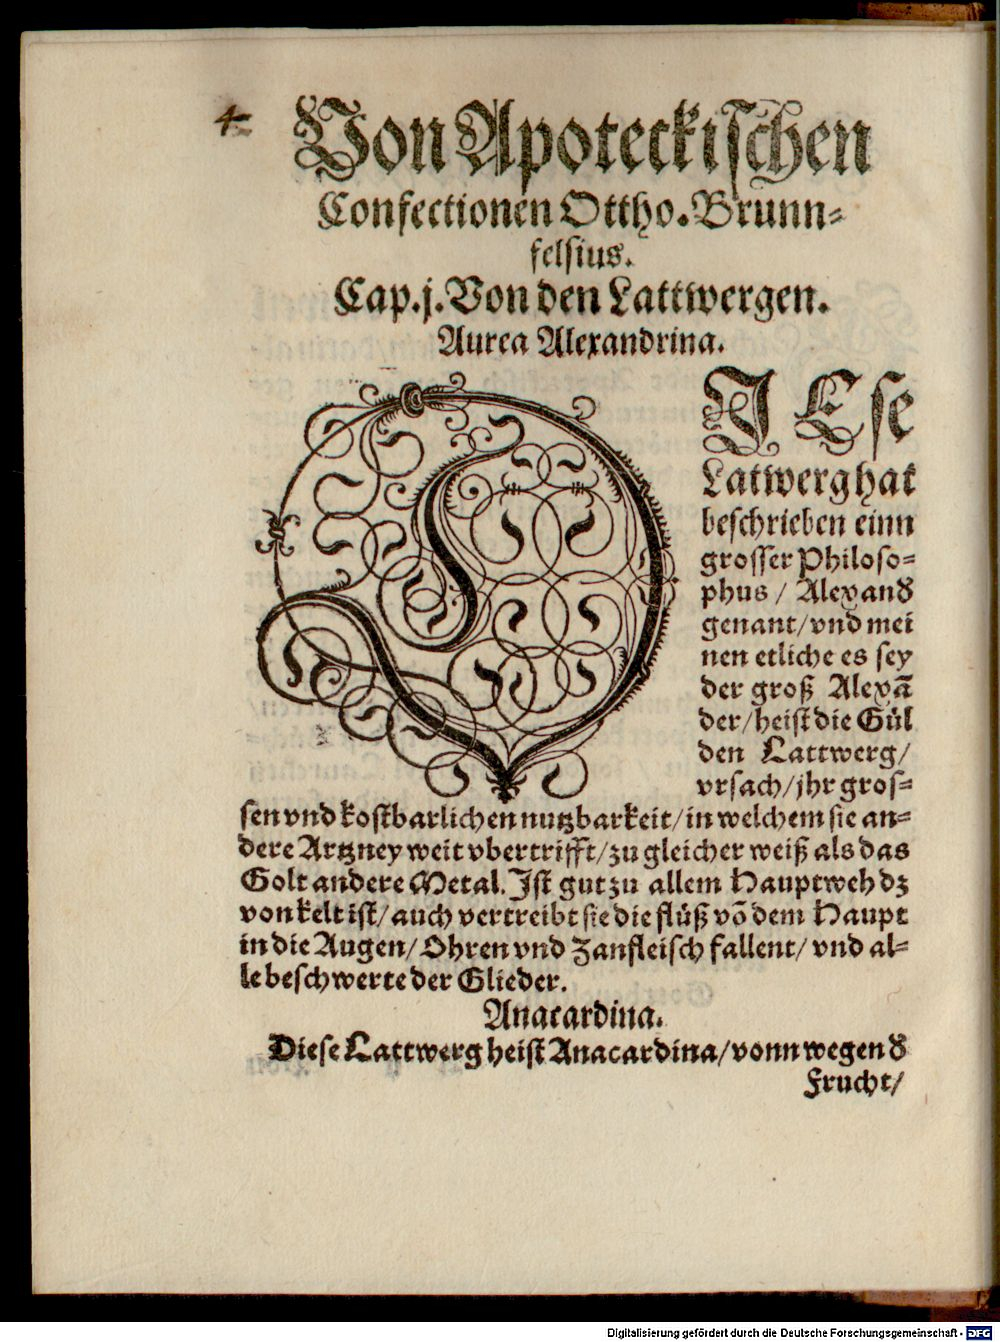 4
Von Apoteckischen
Confectionen Ottho. Brunn⸗
felsius.
Cap. j. Von den Lattwergen.
Aurea Alexandrina.
DJESe
Latwerg hat
beschrieben einn
grosser Philoso⸗
phus / Alexand
genant / vnd mei
nen etliche es sey
der groß Alexā
der / heist die Gül
den Lattwerg /
vrsach / jhr gros⸗
sen vnd kostbarlichen nutzbarkeit / in welchem sie an⸗
dere Artzney weit vbertrifft / zu gleicher weiß als das
Golt andere Metal. Jst gut zu allem Hauptweh dz
von kelt ist / auch vertreibt sie die flüß vō dem Haupt
in die Augen / Ohren vnd Zanfleisch fallent / vnd al⸗
le beschwerte der Glieder.
Anacardina.
Diese Lattwerg heist Anacardina / vonn wegen d
Frucht /
Digitalisierung gefördert durch die Deutsche Forschungsgemeinschaft - DFG